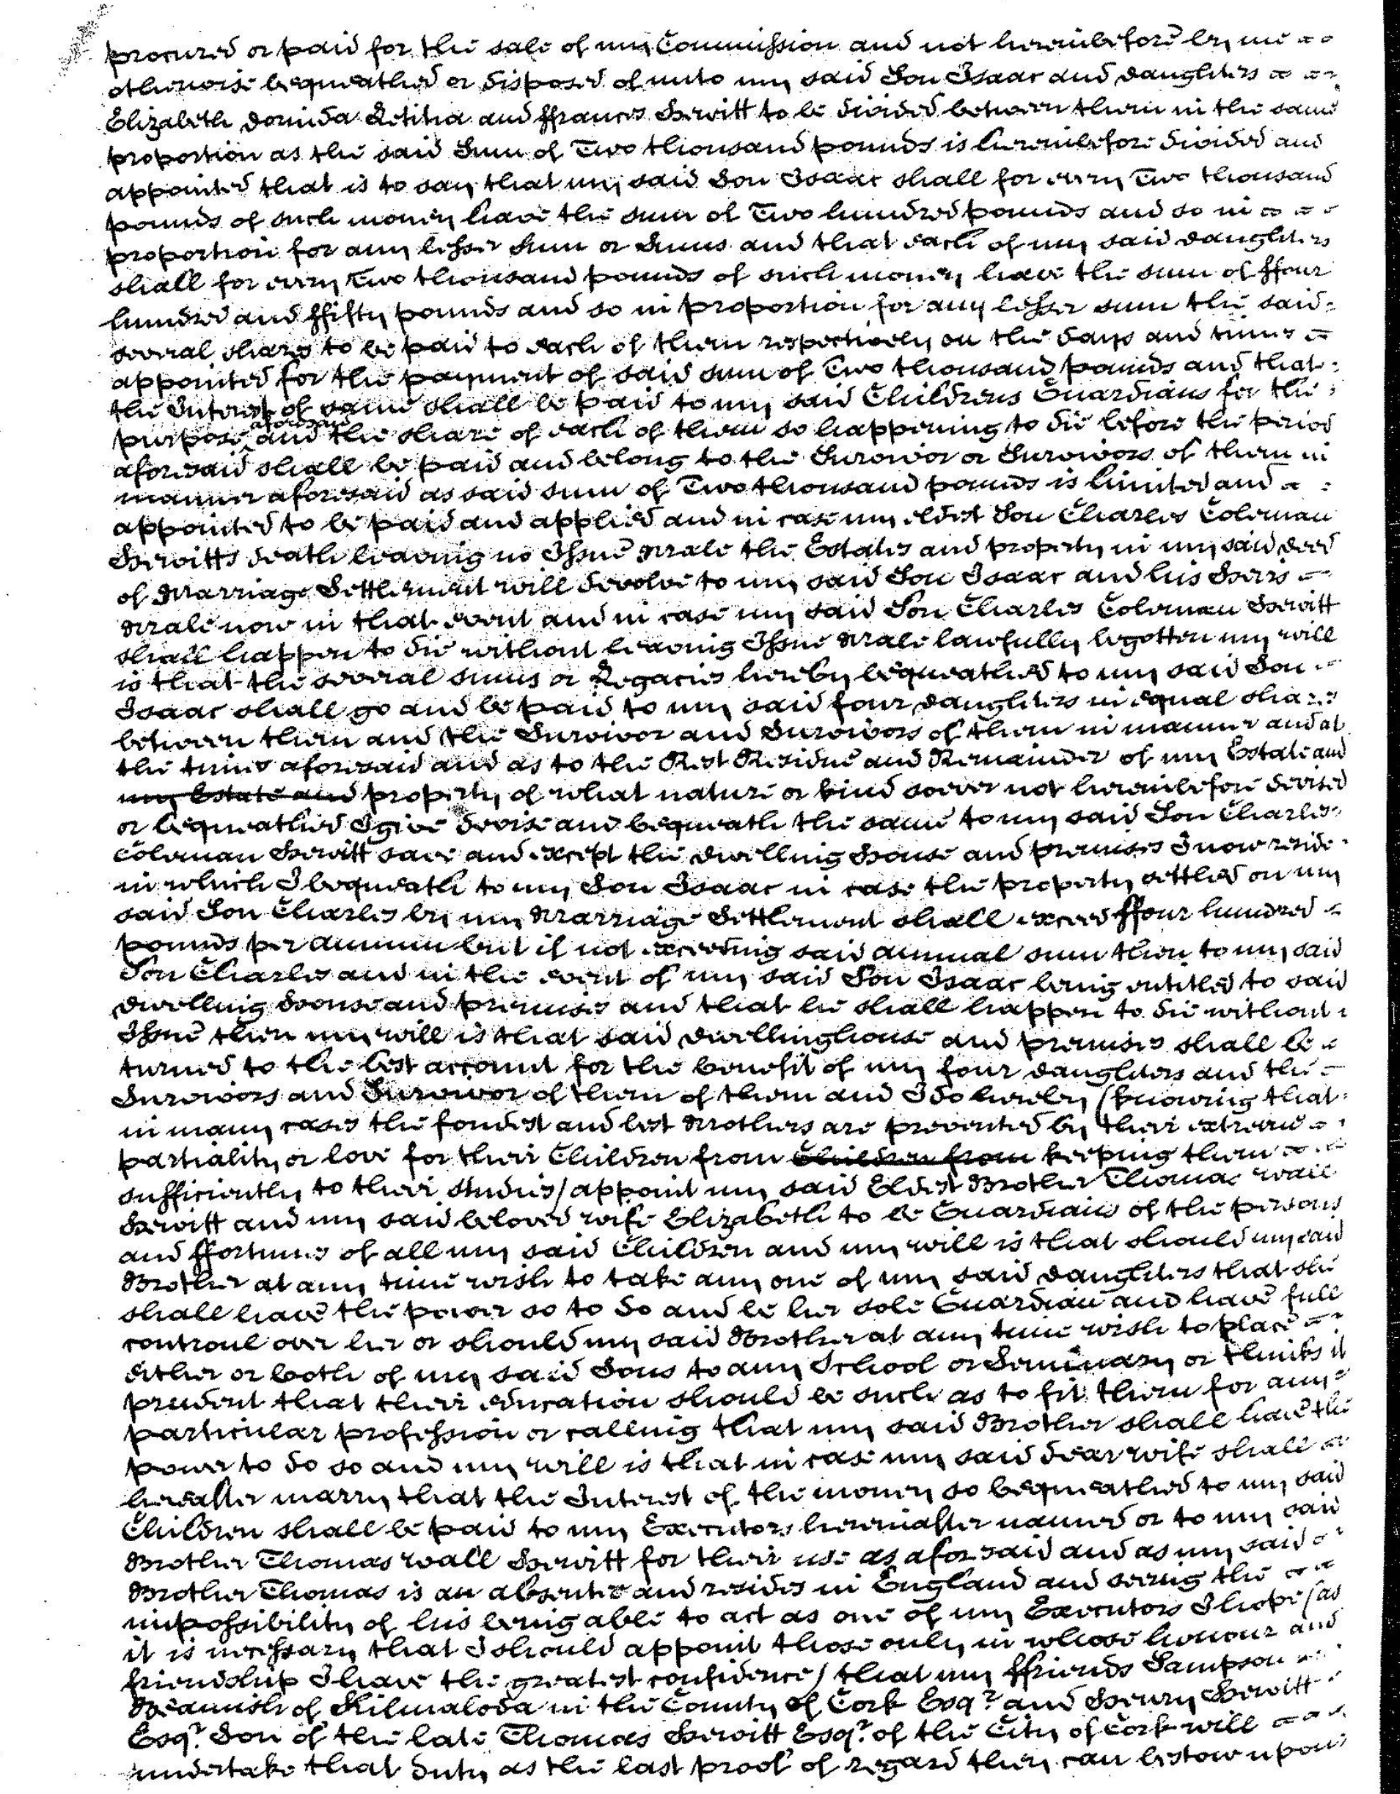 procured or paid for the sale of my Commission and not hereinbefore by me
otherwise bequeathed or disposed of unto my said Son Isaac and daughters
Elizabeth Dorinda Letitia and ffrances Hewitt to be divided between them in the same
proportion as the said Sum of Two thousand pounds is hereinbefore divided and
appointed that is to say that my said Son Isaac shall for every Two thousand
pounds of such money have the sum of Two hundred pounds and so in
proportion for any lesser Sum or Sums and that each of my said daughters
shall for every Two thousand pounds of such money have the sum of ffour
hundred and ffifty pounds and so in proportion for any lesser sum the said
several shares to be paid to each of them respectively on the days and times
appointed for the payment of said sum of Two thousand pounds and that
the Interest of same shall be paid to my said Childrens Guardians for the
purpose aforesaid and the share of each of them so happening to die before the period
aforesaid shall be paid and belong to the Survivor or Survivors of them in
manner aforesaid as said sum of Two thousand pounds is limited and
appointed to be paid and applied and in case my eldest Son Charles Coleman
Hewitts death leaving no Issue Male the Estates and property in my said deed
of Marriage Settlement will devolve to my said Son Isaac and his Heirs
Male now in that event and in case my said Son Charles Coleman Hewitt
shall happen to die without leaving Issue Male lawfully begotten my will
is that the several sums or Legacies hereby bequeathed to my said Son
Isaac shall go and be paid to my said four daughters in equal shares
between them and the Survivor and Survivors of them in manner and at
the times aforesaid and as to the Rest Residue and Remainder of my Estate and
my Estate and property of what nature or kind soever not hereinbefore devised
or bequeathed I give devise and bequeath the same to my said Son Charles
Coleman Hewitt save and except the dwelling House and premises I now reside
in which I bequeath to my Son Isaac in case the property settled on my
said Son Charles by my Marriage Settlement shall exceed ffour hundred
pounds per annum but if not exceeding said annual sum then to my said
Son Charles and in the event of my said Son Isaac being entitled to said
dwelling House and premises and that he shall happen to die without
Issue then my will is that said dwellinghouse and premises shall be
turned to the best account for the benefit of my four daughters and the
Survivors and Survivor of them of them and I do hereby (knowing that
in many cases the fondest and best Mothers are prevented by their extreme
partiality or love for their Children from Children from keeping them
sufficiently to their studies) appoint my said Eldest Brother Thomas Wall
Hewitt and my said beloved wife Elizabeth to be Guardians of the persons
and ffortunes of all my said Children and my will is that should my said
Brother at any time wish to take any one of my said daughters that she
shall have the power so to do and be her sole Guardian and have full
controul over her or should my said Brother at any time wish to place
either or both of my said Sons to any School or Seminary or thinks it
prudent that their education should be such as to fit them for any
particular profession or calling that my said Brother shall have the
power to do so and my will is that in case my said dear wife shall
hereafter marry that the Interest of the money so bequeathed to my said
Children shall be paid to my Executors hereinafter named or to my said
Brother Thomas Wall Hewitt for their use as aforesaid and as my said
Brother Thomas is an absentee and resides in England and seeing the
impossibility of his being able to act as one of my Executors I hope (as
it is necessary that I should appoint those only in whose honour and
friendship I have the greatest confidence) that my ffriends Sampson
Beamish of Kilmaloda in the County of Cork Esqr. and Henry Hewitt
Esqr. Son of the late Thomas Hewitt Esqr. of the City of Cork will
undertake that duty as the last proof of regard they can bestow upon